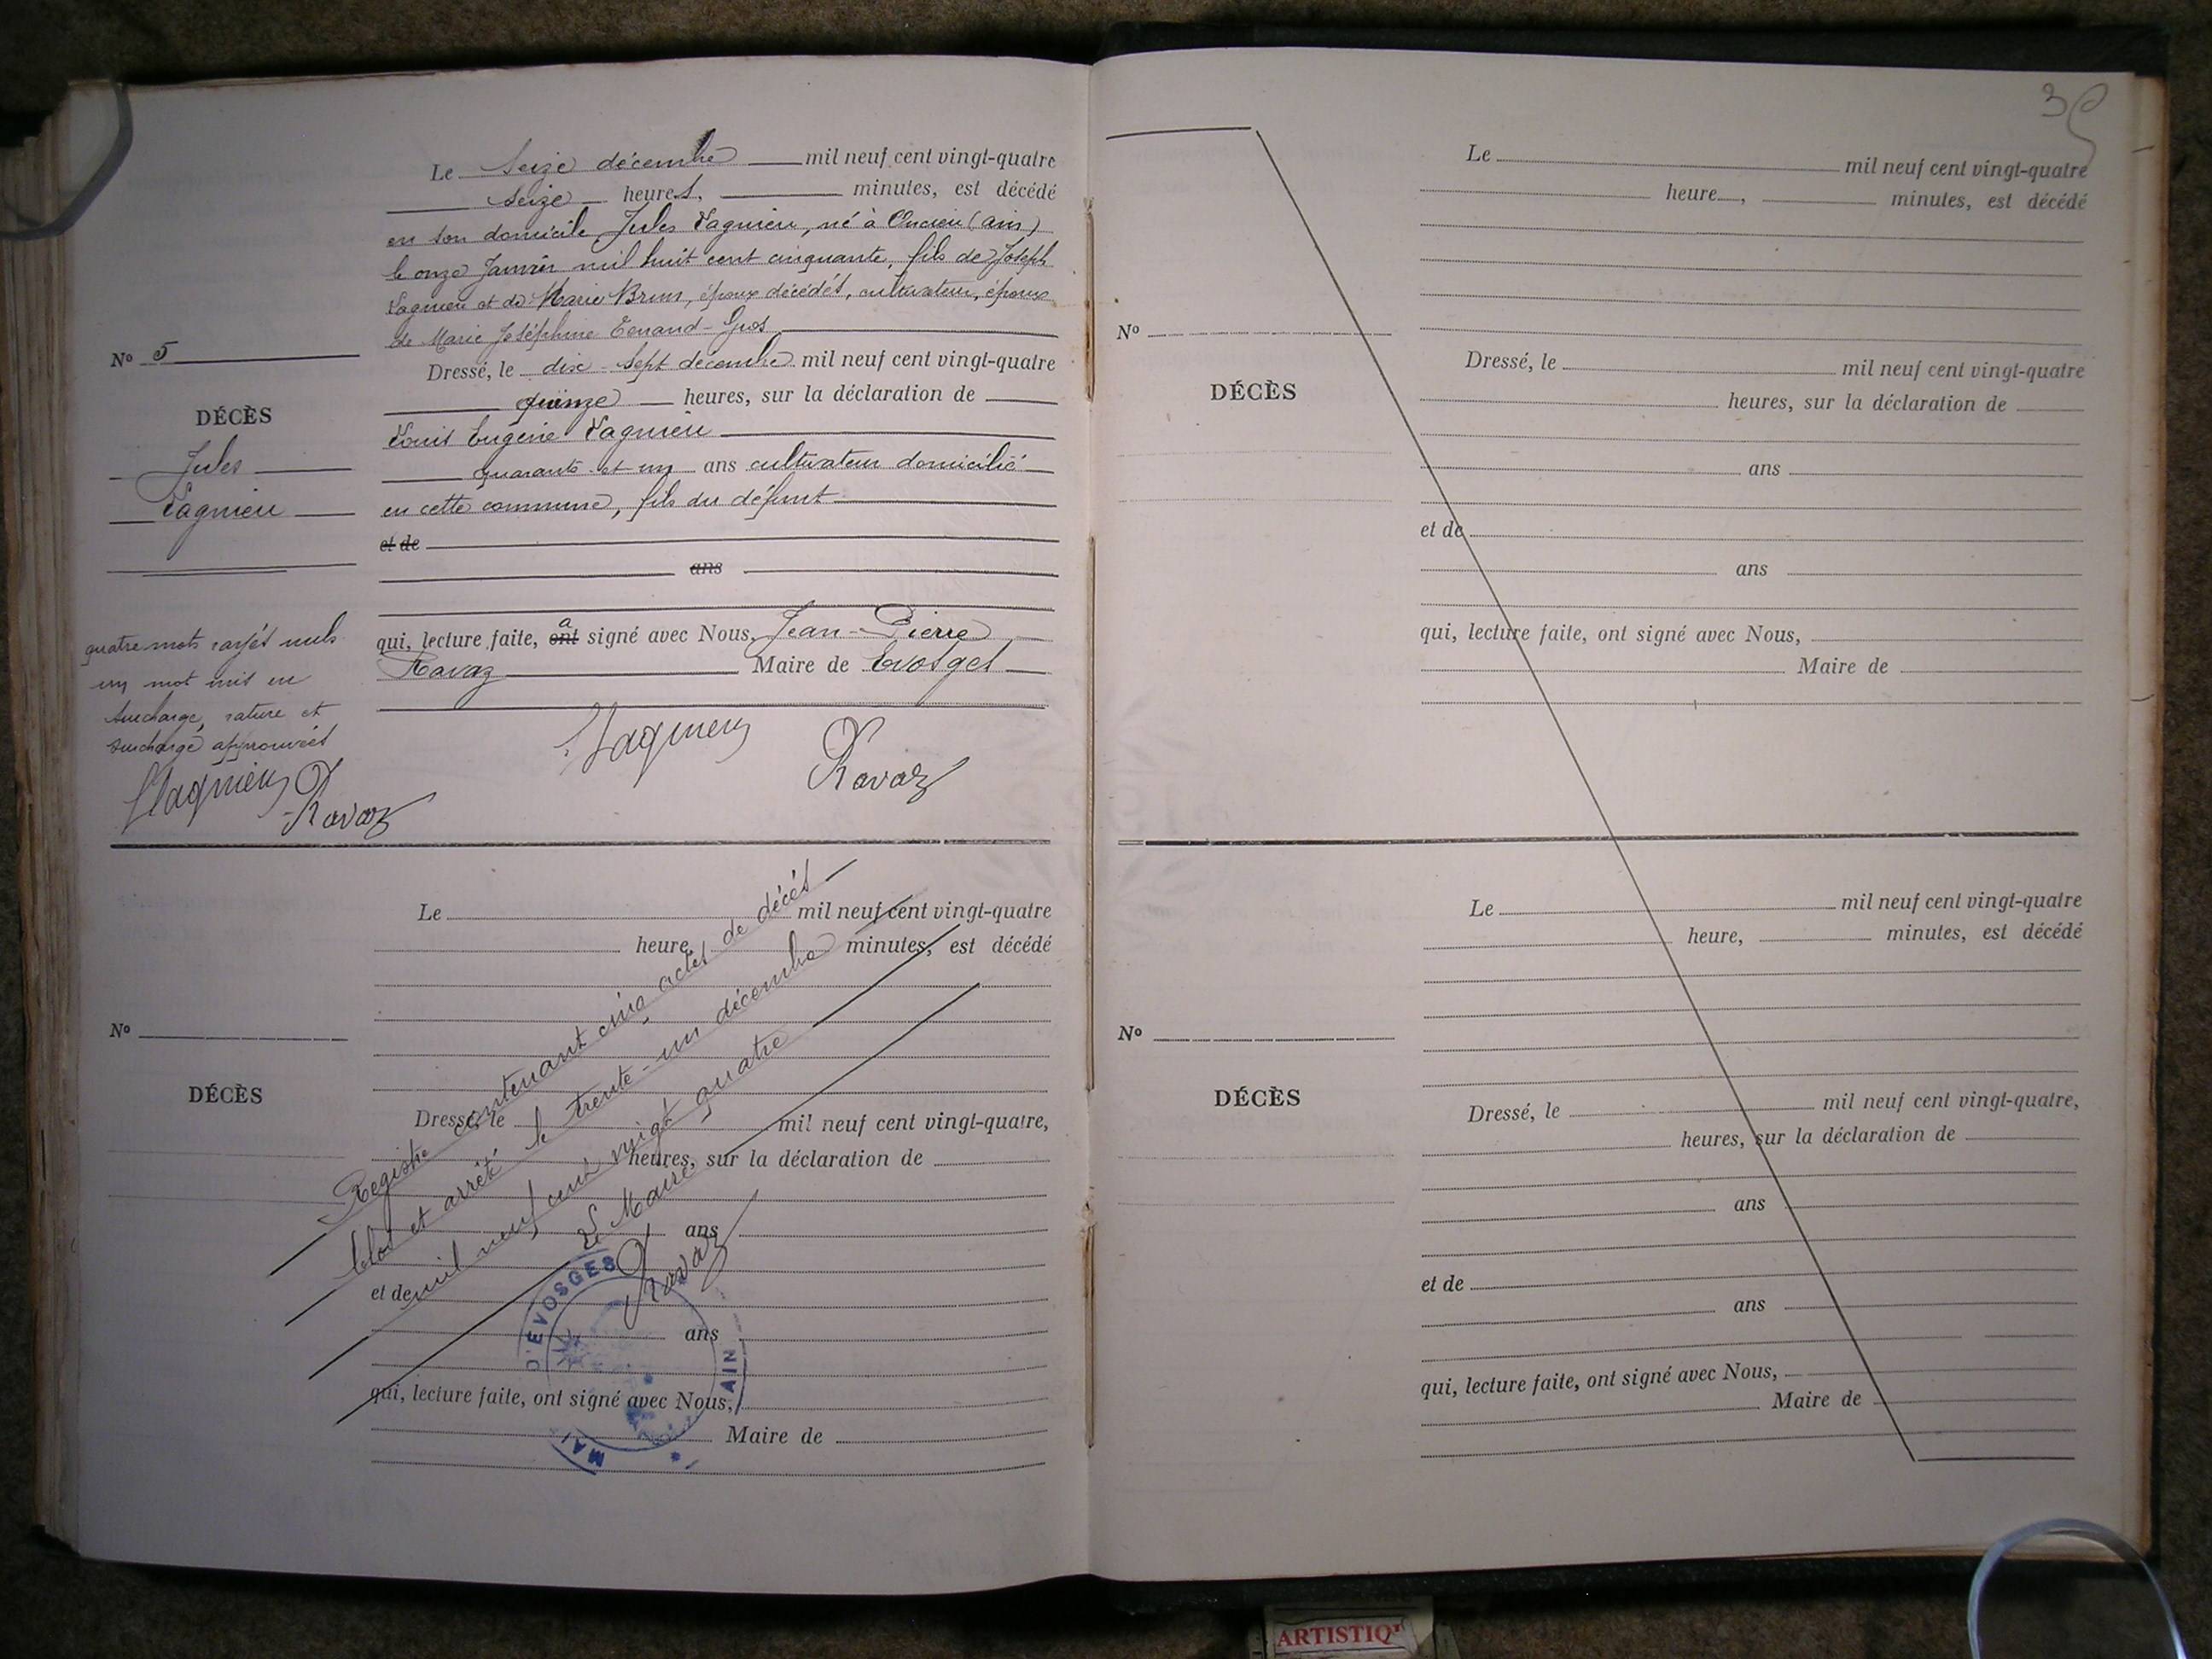 N° 5
DÉCÈS
Jules
Lagnieu
quatre mots rayés nuls
un mot mis en
surcharge, rature et
surcharge approuvées
Lagnieu
Ravaz
Le seize décembre mil neuf cent vingt-quatre
seize heures, minutes, est décédé
en son domicile Jules Lagnieu, né à Oncieu (Ain)
le onze Janvier mil huit cent cinquante, fils de Joseph
Lagnieu et de Marie Brun, époux décédés, cultivateur, époux
de Marie Joséphine Tenand-Gros
Dressé, le dix-sept décembre mil neuf cent vingt-quatre
quinze heures, sur la déclaration de
Louis Eugène Lagnieu
quarante et un ans cultivateur domicilié
en cette commune, fils du défunt
et de
ans
a
qui, lecture faite, ont signé avec Nous, Jean-Pierre
Ravaz Maire de Evosges
Lagnieu
Ravaz
N°
DÉCÈS
Le mil neuf cent vingt-quatre
heure, minutes, est décédé
Dressé, le mil neuf cent vingt-quatre,
heures, sur la déclaration de
ans
et de
ans
qui, lecture faite, ont signé avec Nous,
Maire de
Registre contenant cinq actes de décès
Clos et arrêté le trente-un décembre
mil neuf cent vingt quatre
Le Maire
Ravaz
D'EVOSGES
AIN
MAI
35
N°
DÉCÈS
Le mil neuf cent vingt-quatre
heure, minutes, est décédé
Dressé, le mil neuf cent vingt-quatre
heures, sur la déclaration de
ans
et de
ans
qui, lecture faite, ont signé avec Nous,
Maire de
N°
DÉCÈS
Le mil neuf cent vingt-quatre
heure, minutes, est décédé
Dressé, le mil neuf cent vingt-quatre,
heures, sur la déclaration de
ans
et de
ans
qui, lecture faite, ont signé avec Nous,
Maire de
ARTISTIQ